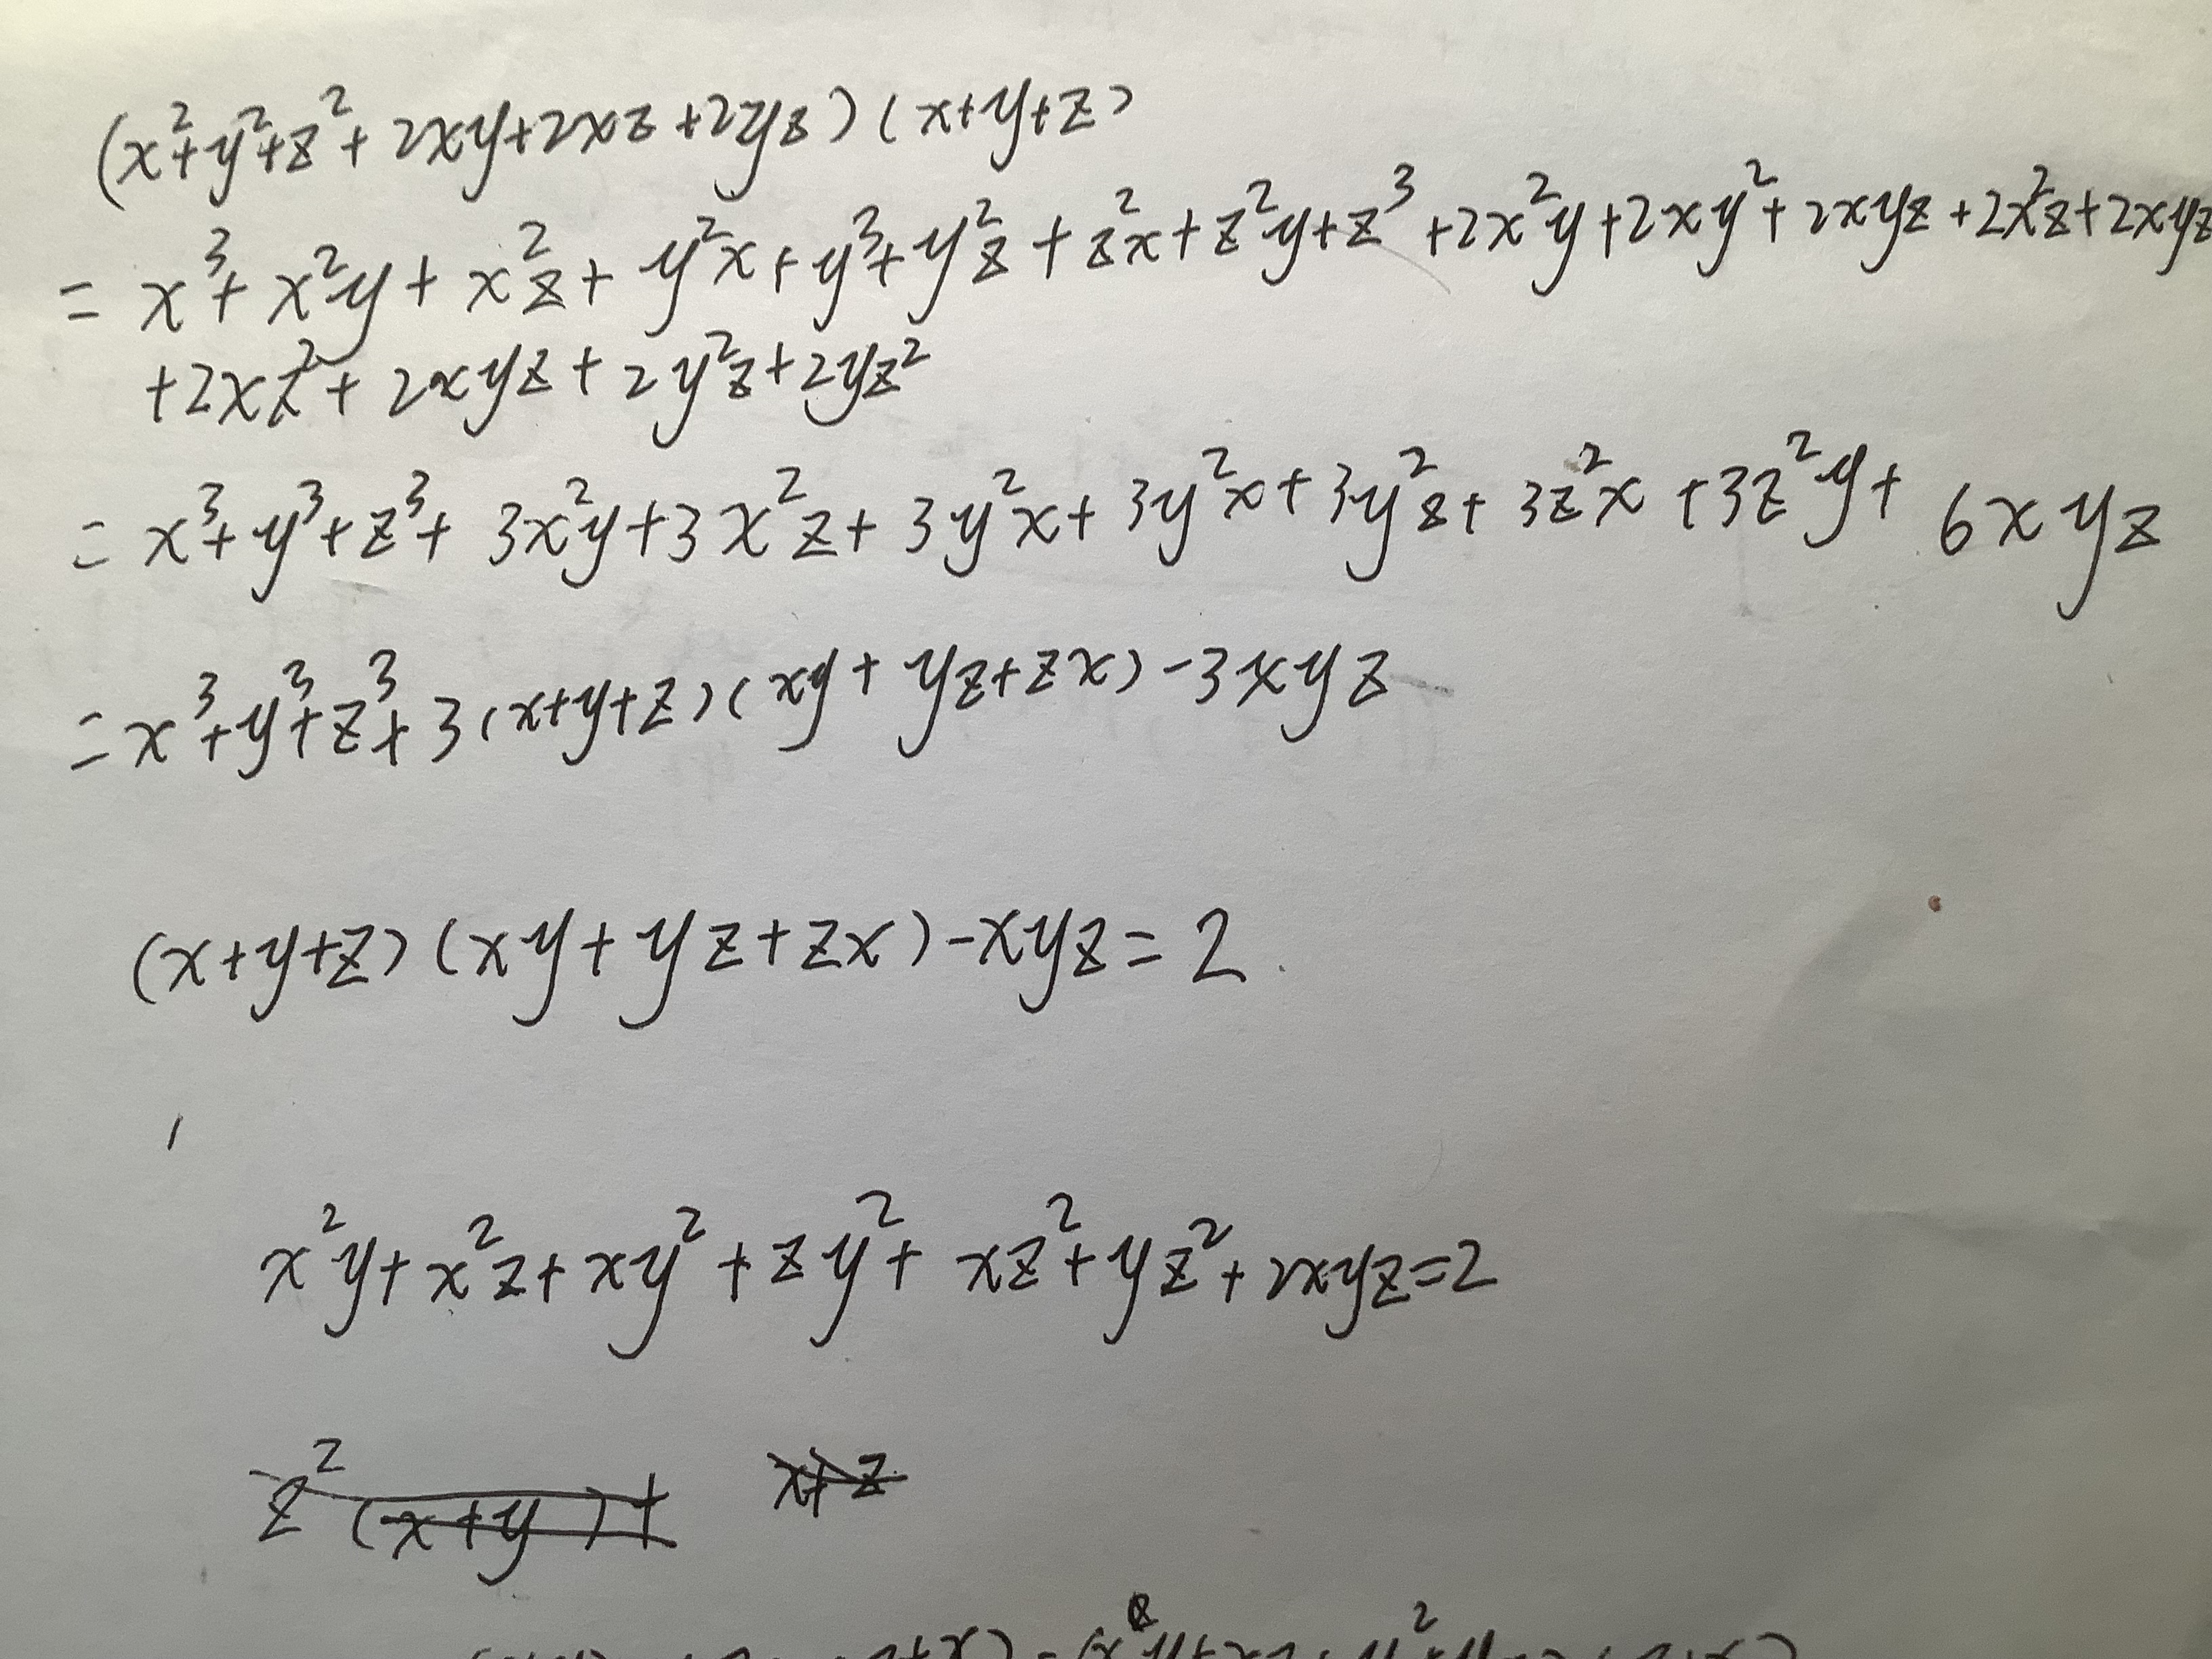 (x²+y²+z²+2xy+2xz+2yz)(x+y+z)
=x³+x²y+x²z+y²x+y³+y²z+z²x+z²y+z³+2x²y+2xy²+2xyz+2x²z+2xyz
+2xz²+2xyz+2y²z+2yz²
=x³+y³+z³+3x²y+3x²z+3y²x+3y²x+3y²z+3z²x+3z²y+6xyz
=x³+y³+z³+3(x+y+z)(xy+yz+zx)-3xyz
(x+y+z)(xy+yz+zx)-xyz=2
x²y+x²z+xy²+zy²+xz²+yz²+2xyz=2
z²(x+y)+ x+z